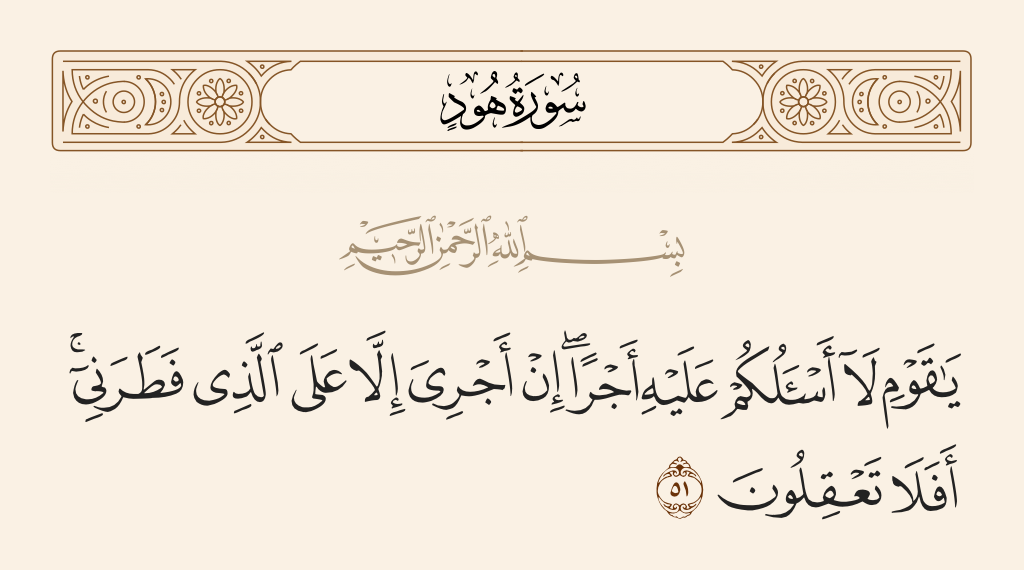 سُورَةُ هُودٍ
بِسْمِ ٱللَّهِ ٱلرَّحْمَٰنِ ٱلرَّحِيمِ
يَٰقَوْمِ لَآ أَسْـَٔلُكُمْ عَلَيْهِ أَجْرًا ۖ إِنْ أَجْرِىَ إِلَّا عَلَى ٱلَّذِى فَطَرَنِىٓ ۚ
أَفَلَا تَعْقِلُونَ ٥١